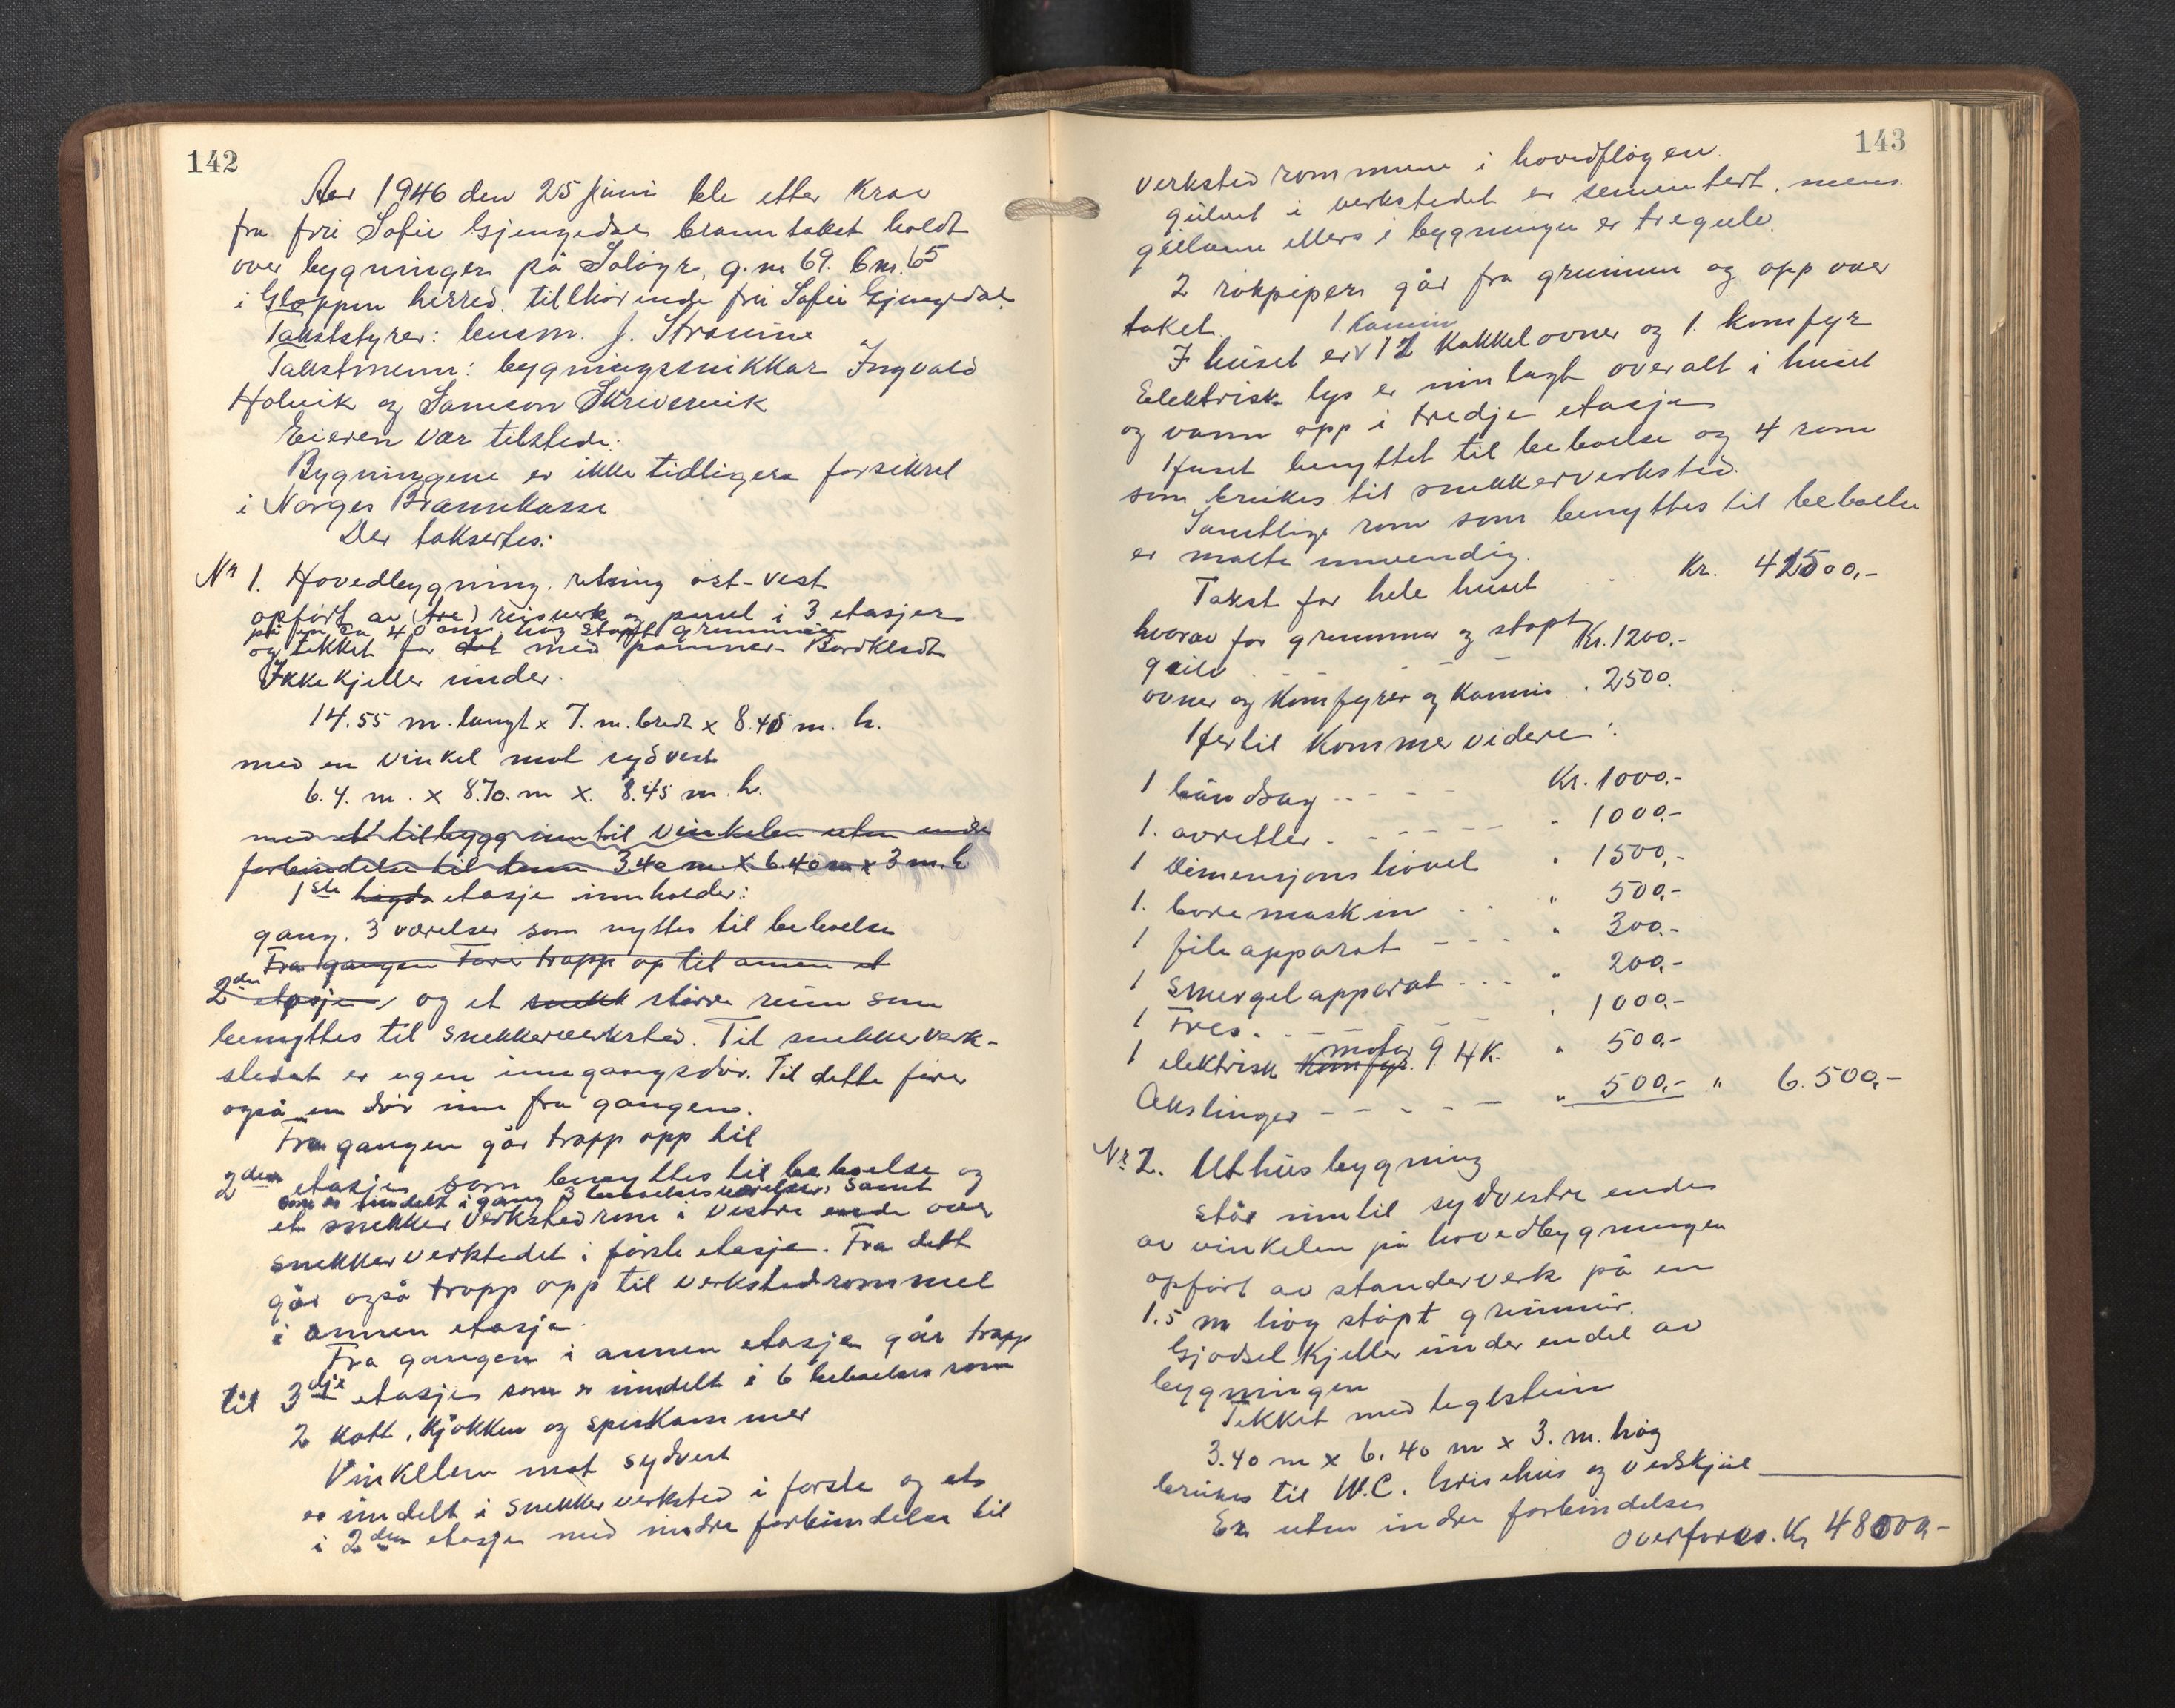 142
Aar 1946 den 25 juni ble etter krav
fra fru Sofie Gjengedal branntakst holdt
over bygninger på Soløyr, g.nr 69. b.nr. 65
i Gloppen herred tilhørende fru Sofie Gjengedal.
Takststyrer: lensm. J. Straume
Takstmenn: bygningssnikkar Ingvald
Holvik og Samson Skrivervik
Eieren var tilstede.
Bygningene er ikke tidligere forsikret
i Norges Brannkasse
Der taksertes:
Nr 1. Hovedbygning, retning øst-vest
opført av (tre) reisverk og panel i 3 etasjer
på en ca 40 cm høg støpt grunnmur
og tekket for det med panner Bordkledt
Ikke kjeller under.
14.55 m. langt x 7. m. bredt x 8.45 m. h.
med en vinkel mot sydvest
6.4. m. x 8.70. m x. 8.45 m. h.
med et tilbygg inntil vinkelen uten indre
forbindelse til denne 3.40 m. x 6.40 m x 3 m. h
1ste høgda etasje innholder:
gang. 3 værelser som nyttes til beboelse
Fra gangen fører trapp op til annen et
2den etasje, og et snekk større rum som
benyttes til snekkerverksted. Til snekkerverk-
stedet er egen inngangsdør. Til dette fører
også en dør inn fra gangen.
Fra gangen går trapp opp til
2den etasjen som benyttes til beboelse og
som er inndelt i gang 3 beboelsesværelser, samt
et snekkerverkstedrom i vestre ende over
snekkerverkstedet i første etasje. Fra dett
går også trapp opp til verkstedrommet
i annen etasje.
Fra gangen i annen etasje går trapp
til 3dje etasjen som er inndelt i 6 beboelsesrom
2 kott, kjøkken og spiskammer
Vinkelen mot sydvest
er inndelt i snekkerverksted i første og ett
i 2den etasje med indre forbindelse til
143
verkstedrommene i hovedfløyen.
gulvet i verkstedet er sementert. mens
gulvene ellers i bygningen er tregulv.
2 rökpiper går fra grunnen og opp over
taket.
1. Kamin
I huset er v 12 kakkelovner og 1. komfyr
Elektrisk lys er innlagt overalt i huset
og vann opp i tredje etasje
Huset benyttet til beboelse og 4 rom
som brukes til snekkerverksted.
Samtlige rom som benyttes til beboelse
er malte innvendig.
Takst for hele huset . . Kr. 41500,-
hvorav for grunnmur og støpt
gulv Kr. 1200.-
ovner og komfyrer og kamin . 2500.
Hertil kommer videre:
1 båndsag . . - - - Kr. 1000.-
1. avretter. - - - - - " 1000.-
1 Dimensjonshövel " 1500,-
1. boremaskin . . " 500,-
1 fileapparat - - - " 300.-
1 Smergelapparat . . . " 200,-
1 Fres. . - - - - . 1000.-
1 elektrisk Komfyr. motor 9 HK. " 500.-
Akslinger - - - - - " 500,- " 6.500,-
Nr 2. Uthusbygning
står inntil sydvestre ende
av vinkelen på hovedbygningen
opført av standerverk på en
1.5 m høg støpt grunnmur.
Gjødselkjeller under endel av
bygningen
Tekket med teglstein
3.40 m x 6.40 m x 3. m. høg
brukes til W.C. Grisehus og vedskjul
Er uten indre forbindelse
overføres. Kr 48000,-